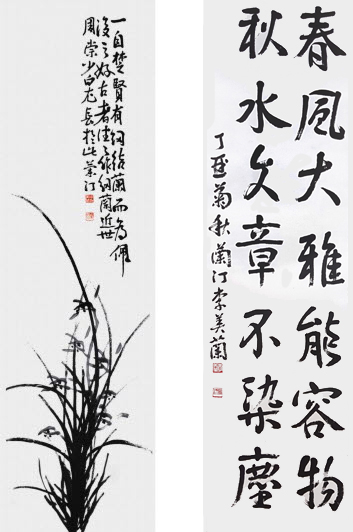 春風大雅能容物
秋水文章不染塵
丁亥菊秋蘭汀李美蘭
一自楚賢有詞
蘭而為佩
後之好古者
周崇少白尤長於此蘭汀